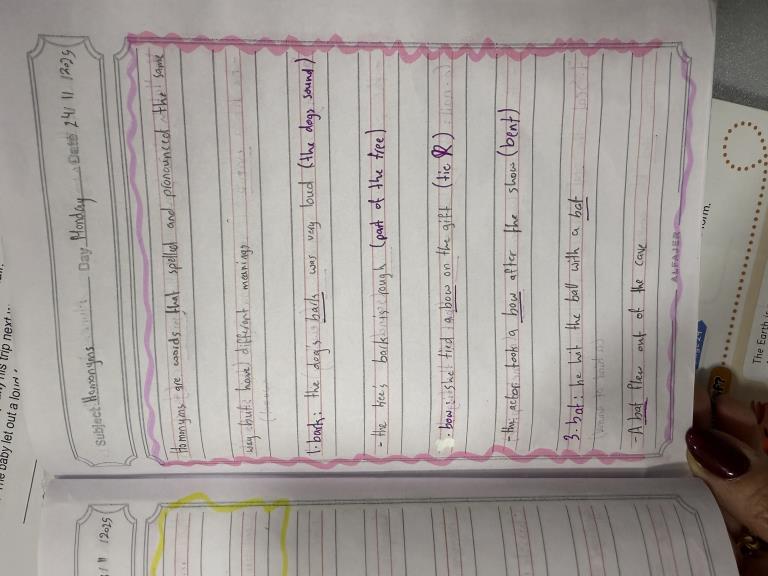 Subject Homonyms Day Monday Date 24/11/2025
Homonyms are words that spelled and pronounced the same
way but have different meanings
1. bark: the dog's bark was very loud (the dogs sound)
- the tree's bark is rough (part of the tree)
bow: she tied a bow on the gift (tie)
- the actor took a bow after the show (bent)
3. bat: he hit the ball with a bat
- A bat flew out of the cave
ALFAJER
/11/2025
his trip next
The baby let out a loud
form.
The Earth is